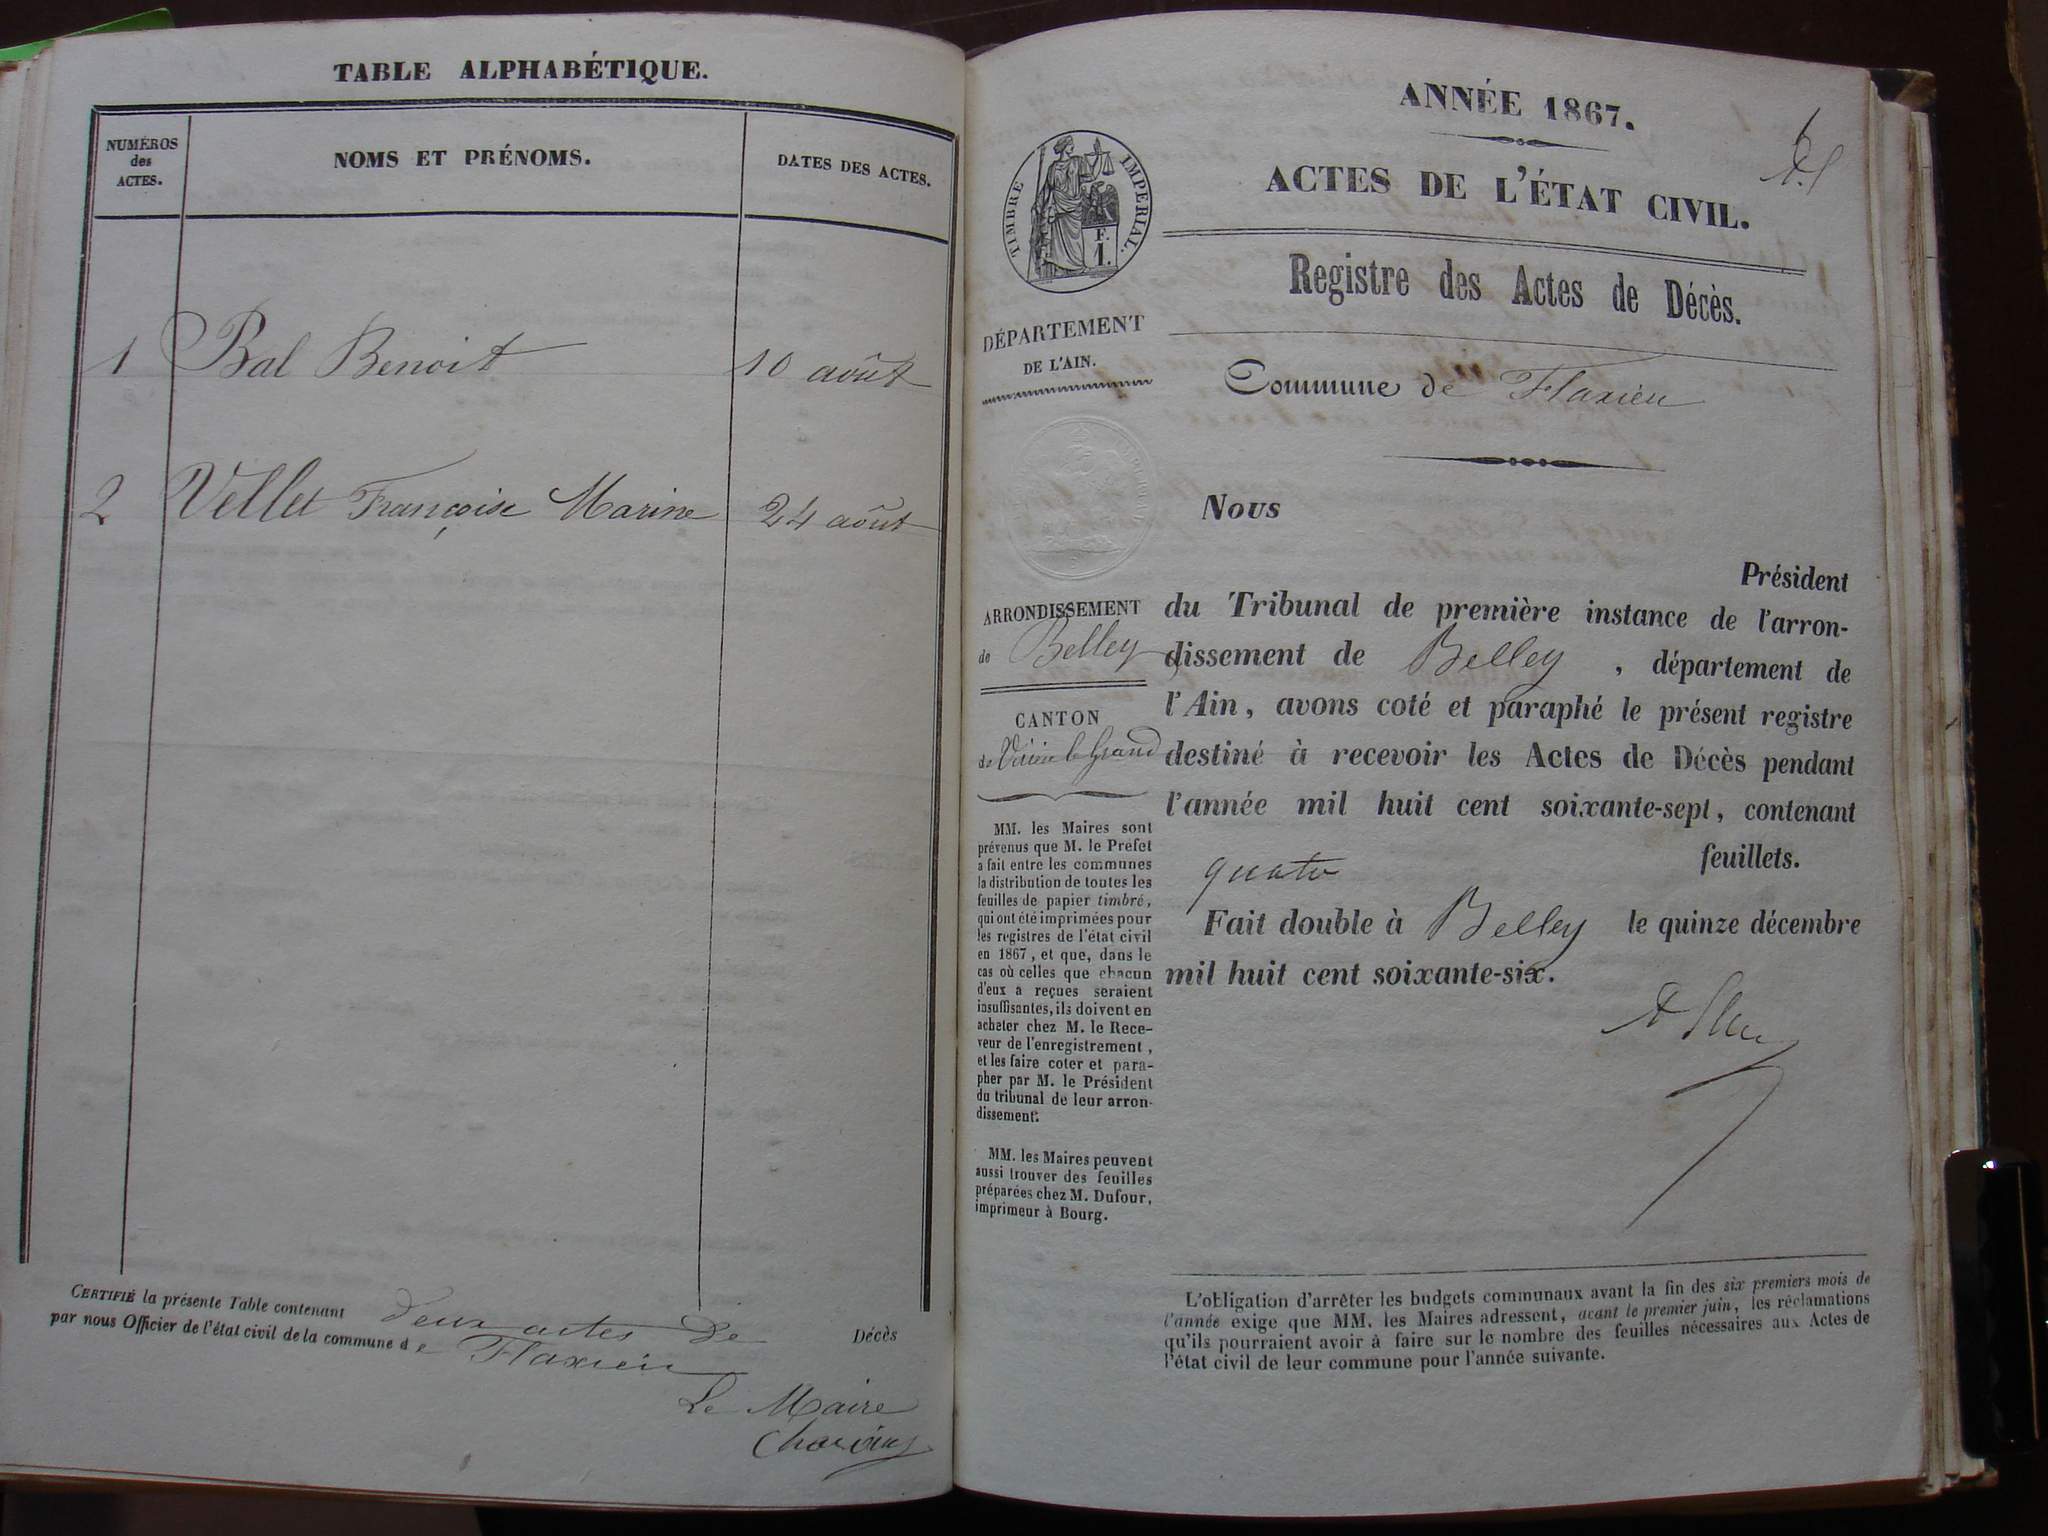 TABLE ALPHABÉTIQUE.
NUMÉROS
des
ACTES.
NOMS ET PRÉNOMS.
DATES DES ACTES.
1 Bal Benoit 10 août
2 Vellet Françoise Marine 24 août
CERTIFIÉ la présente Table contenant deux actes de Décès
par nous Officier de l'état civil de la commune de Flaxieu
Le Maire
ANNÉE 1867.
ACTES DE L'ÉTAT CIVIL.
TIMBRE IMPERIAL.
F.
1.
Registre des Actes de Décès.
DÉPARTEMENT
DE L'AIN.
Commune de Flaxieu
ARRONDISSEMENT
de Belley
CANTON
de Virieu le Grand
MM. les Maires sont
prévenus que M. le Préfet
a fait entre les communes
la distribution de toutes les
feuilles de papier timbré,
qui ont été imprimées pour
les registres de l'état civil
en 1867, et que, dans le
cas où celles que chacun
d'eux a reçues seraient
insuffisantes, ils doivent en
acheter chez M. le Rece-
veur de l'enregistrement,
et les faire coter et para-
pher par M. le Président
du tribunal de leur arron-
dissement.
MM. les Maires peuvent
aussi trouver des feuilles
préparées chez M. Dufour,
imprimeur à Bourg.
Nous
Président
du Tribunal de première instance de l'arron-
dissement de Belley, département de
l'Ain, avons coté et paraphé le présent registre
destiné à recevoir les Actes de Décès pendant
l'année mil huit cent soixante-sept, contenant
quatre feuillets.
Fait double à Belley le quinze décembre
mil huit cent soixante-six.
L'obligation d'arrêter les budgets communaux avant la fin des six premiers mois de
l'année exige que MM. les Maires adressent, avant le premier juin, les réclamations
qu'ils pourraient avoir à faire sur le nombre des feuilles nécessaires aux Actes de
l'état civil de leur commune pour l'année suivante.